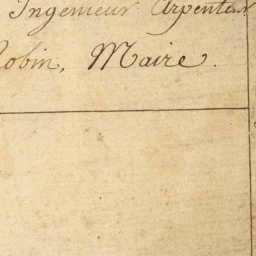 Ingenieur Arpenteur
Robin, Maire.